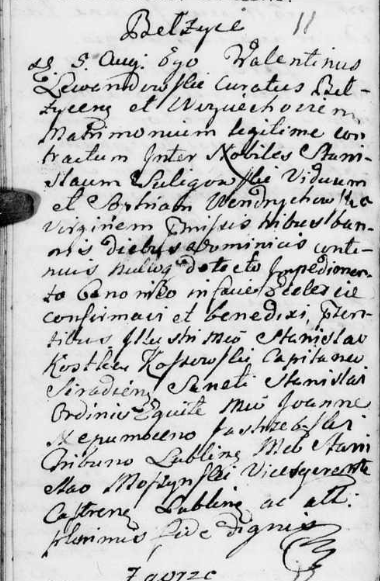 Belzyce 11
28 9. Aug. Ego Valentinus
Lewandowski Curatus Bel-
zycens et Woyciechovien
Matrimonium legitime con
tractum Inter Nobiles Stani-
slaum Suligowski Viduum
et Wendrychowska
Virginem Praemissis tribus ban-
nis diebus Dominicis conti-
nuis nulloq detecto Impedimen-
to Canonico in facie Ecclesiae
confirmavi et benedixi, praesen-
tibus Illustri Mco Stanislao
Kostka Kossowski Capitaneo
Siradien Sancti Stanislai
Ordinis Equite Mco Joanne
Nepumoceno Jastrzębski
Tribuno Lublinen Mco Stani
slao Moszynski Vicesgerente
Castren Lublinen ac alt:
plurimis fide dignis